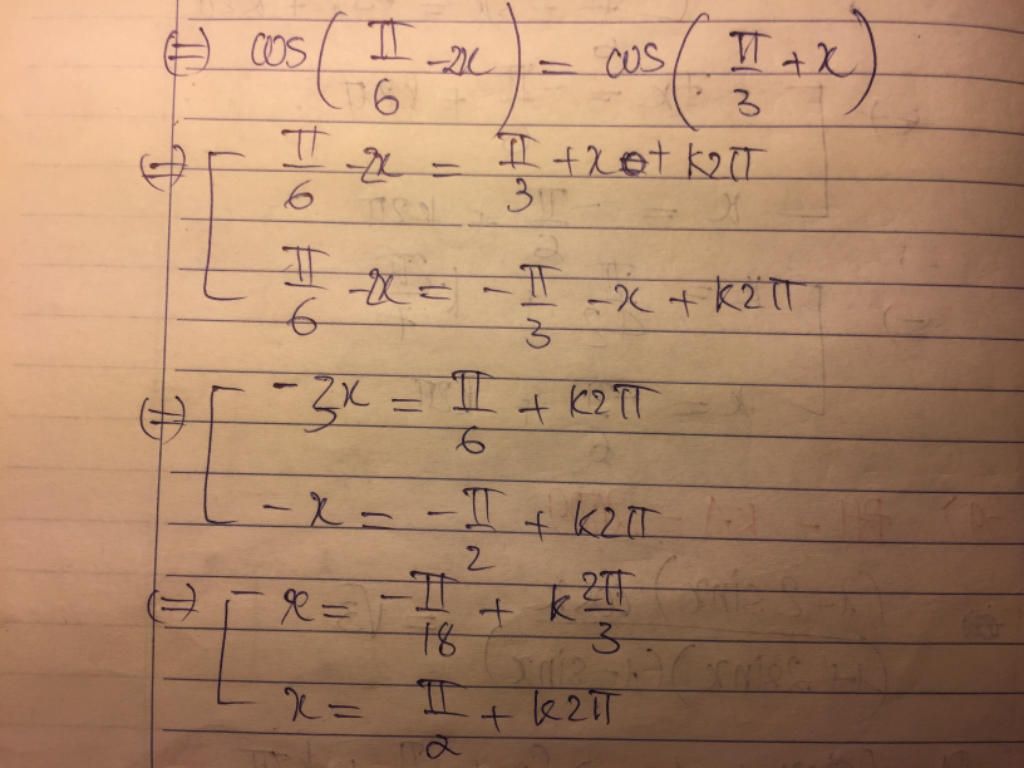 (=) cos(π/6 - 2x) = cos(π/3 + x)
(=) [ π/6 - 2x = π/3 + x + k2π
π/6 - 2x = -π/3 - x + k2π
(=) [ -3x = π/6 + k2π
-x = -π/2 + k2π
(=) [ x = -π/18 + k2π/3
x = π/2 + k2π